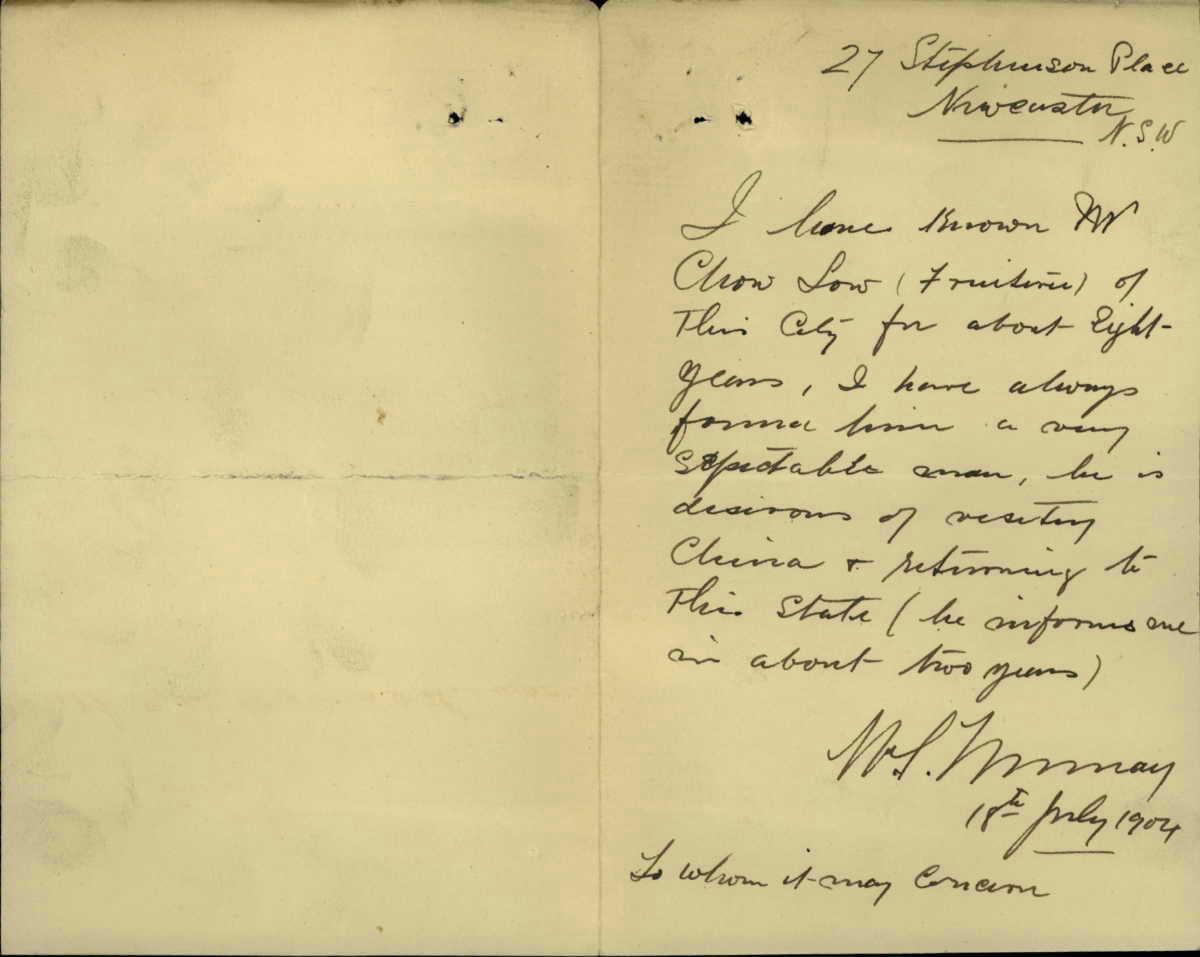 27 Stephenson Place
Newcastle
N.S.W
I have known Mr
Chow Low (Fruiterer) of
This City for about Eight
years, I have always
found him a very
respectable man, he is
desirous of visiting
China & returning to
This State (he informs me
in about two years)
W.S. Murray
18th July 1904
To whom it may Concern